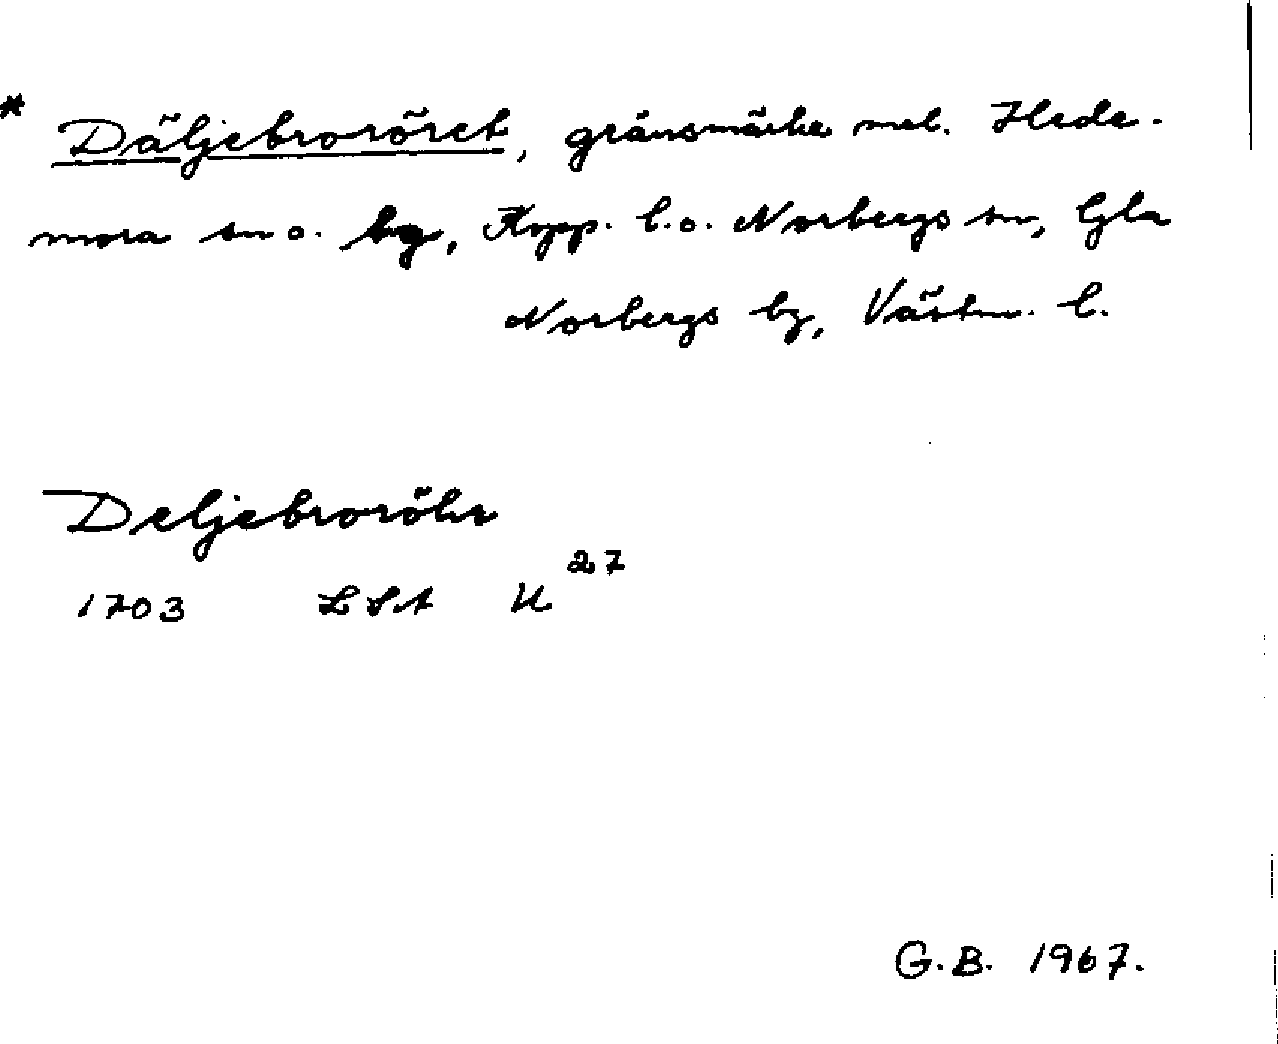 * Däljebroröret, gränsmärke mel. Hede-
mora sn o. bg, Kopp. l. o. Norbergs sn, Gla
Norbergs bg, Västm. l.
Deljebroröhr
1703 LSA U 27
G.B. 1967.